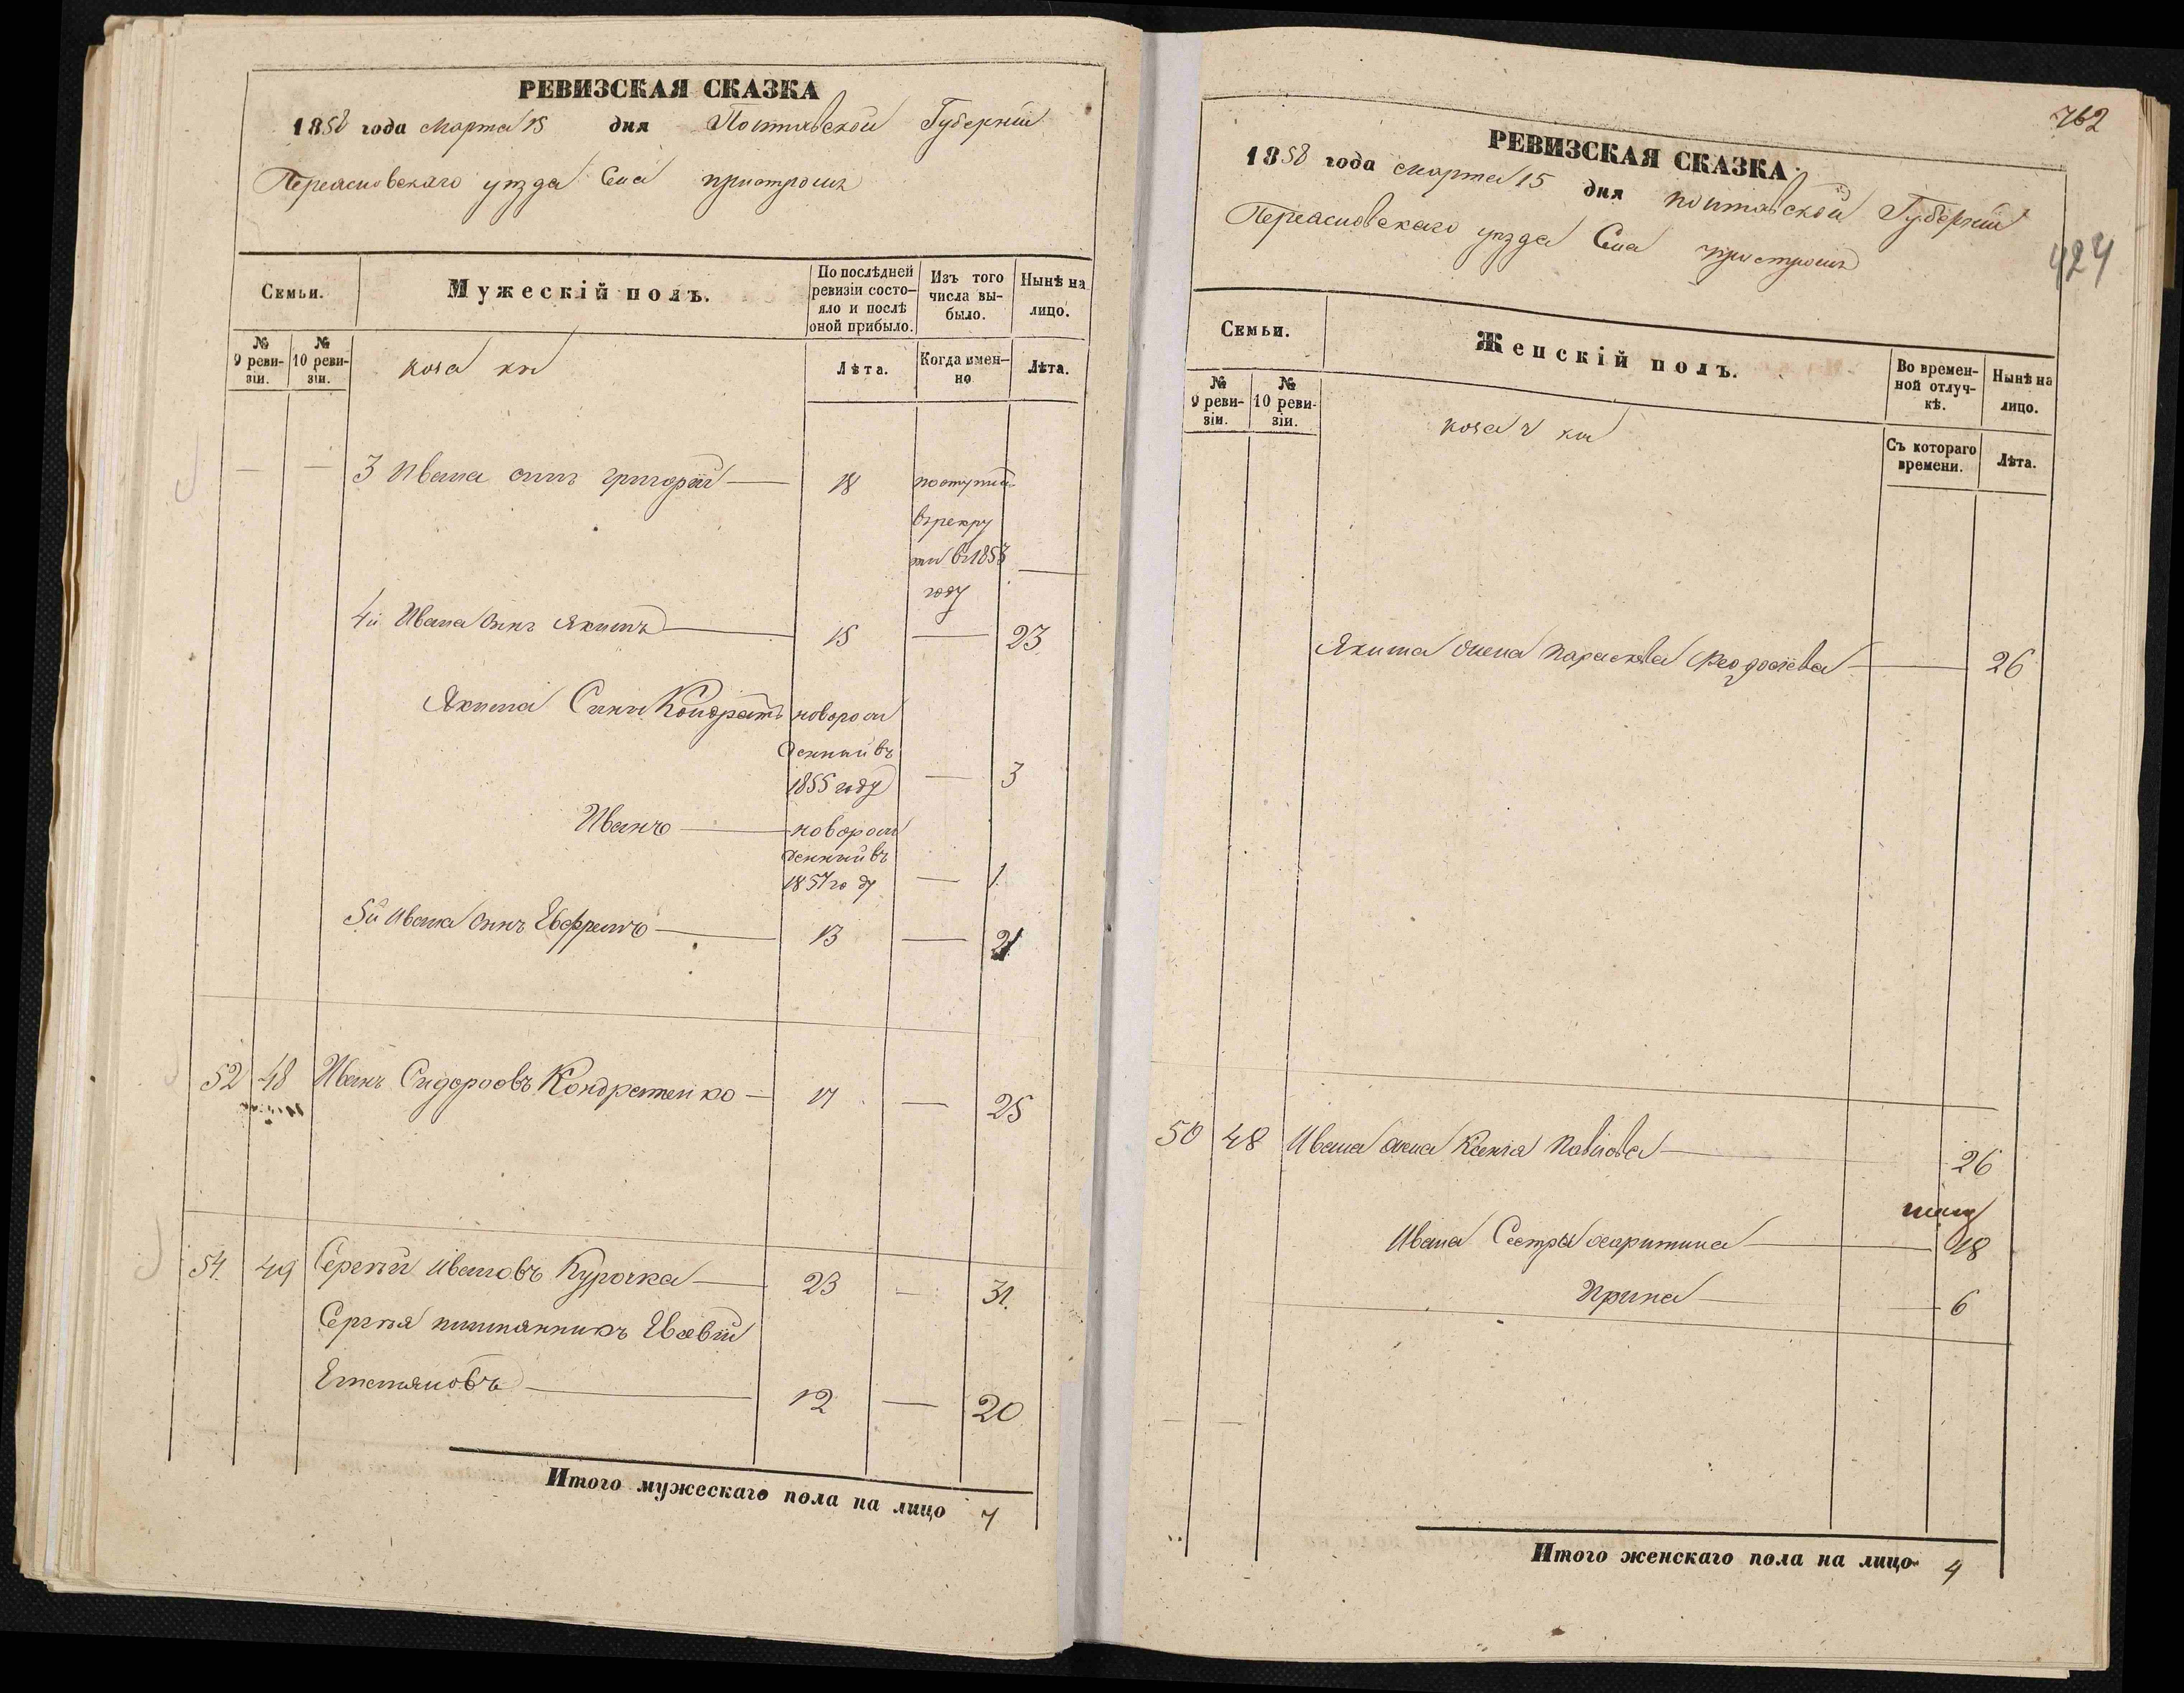 РЕВИЗСКАЯ СКАЗКА
1858 года Марта 15 дня Полтавской Губернiи
Переясловскаго уезда Села пристромъ
Семьи.
Мужескiй полъ.
По послѣдней ревизiи состо-
яло и послѣ
оной прибыло.
Изъ того
числа вы-
было.
Нынѣ на
лицо.
№
9 реви-
зiи.
№
10 реви-
зiи.
коза ки
Лѣта.
Когда имен-
но
Лѣта.
— — 3 Ивана сынъ григорiй — 18
поступил
врекру
ты в 1853
году —
4й Ивана сынъ Якимъ — 15 — 23
Якима Сыны Кондратъ новорож
денный въ
1855 году — 3
Иванъ — новорож
денный въ
1857 году — 1
5й Ивана сынъ Ефремъ — 13 — 21
52 48 Иванъ Сидоровъ Кондратенко — 17 — 25
54. 49 Сергѣй Ивановъ Курочка — 23 — 31.
Сергѣя племянникъ Евсевiй
Емельяновъ — 12 — 20
Итого мужескаго пола на лицо 7
762
424
РЕВИЗСКАЯ СКАЗКА.
1858 года Марта 15 дня полтавской Губернiи
Переясловскаго уезда Села пристромъ
Семьи.
Женскiй полъ.
Во времен-
ной отлуч-
кѣ.
Нынѣ на
лицо.
№
9 реви-
зiи.
№
10 реви-
зiи.
коза ч ки
Съ котораго
времени.
Лѣта.
Якима жена параскева Феодосiева — 26
50 48 Ивана жена Ксенiя Павлова — 26
Ивана Сестры Мартина — 18
Ирина — 6
Итого женскаго пола на лицо 4